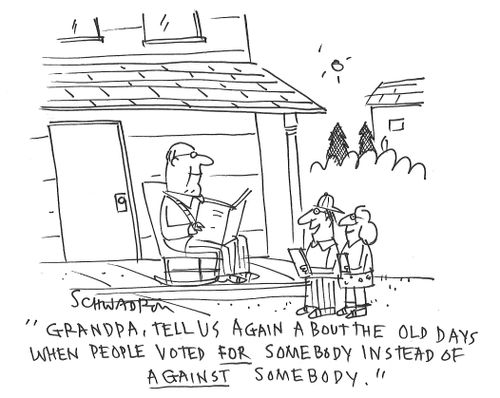 SCHWADRON
"GRANDPA, TELL US AGAIN ABOUT THE OLD DAYS
WHEN PEOPLE VOTED FOR SOMEBODY INSTEAD OF
AGAINST SOMEBODY."